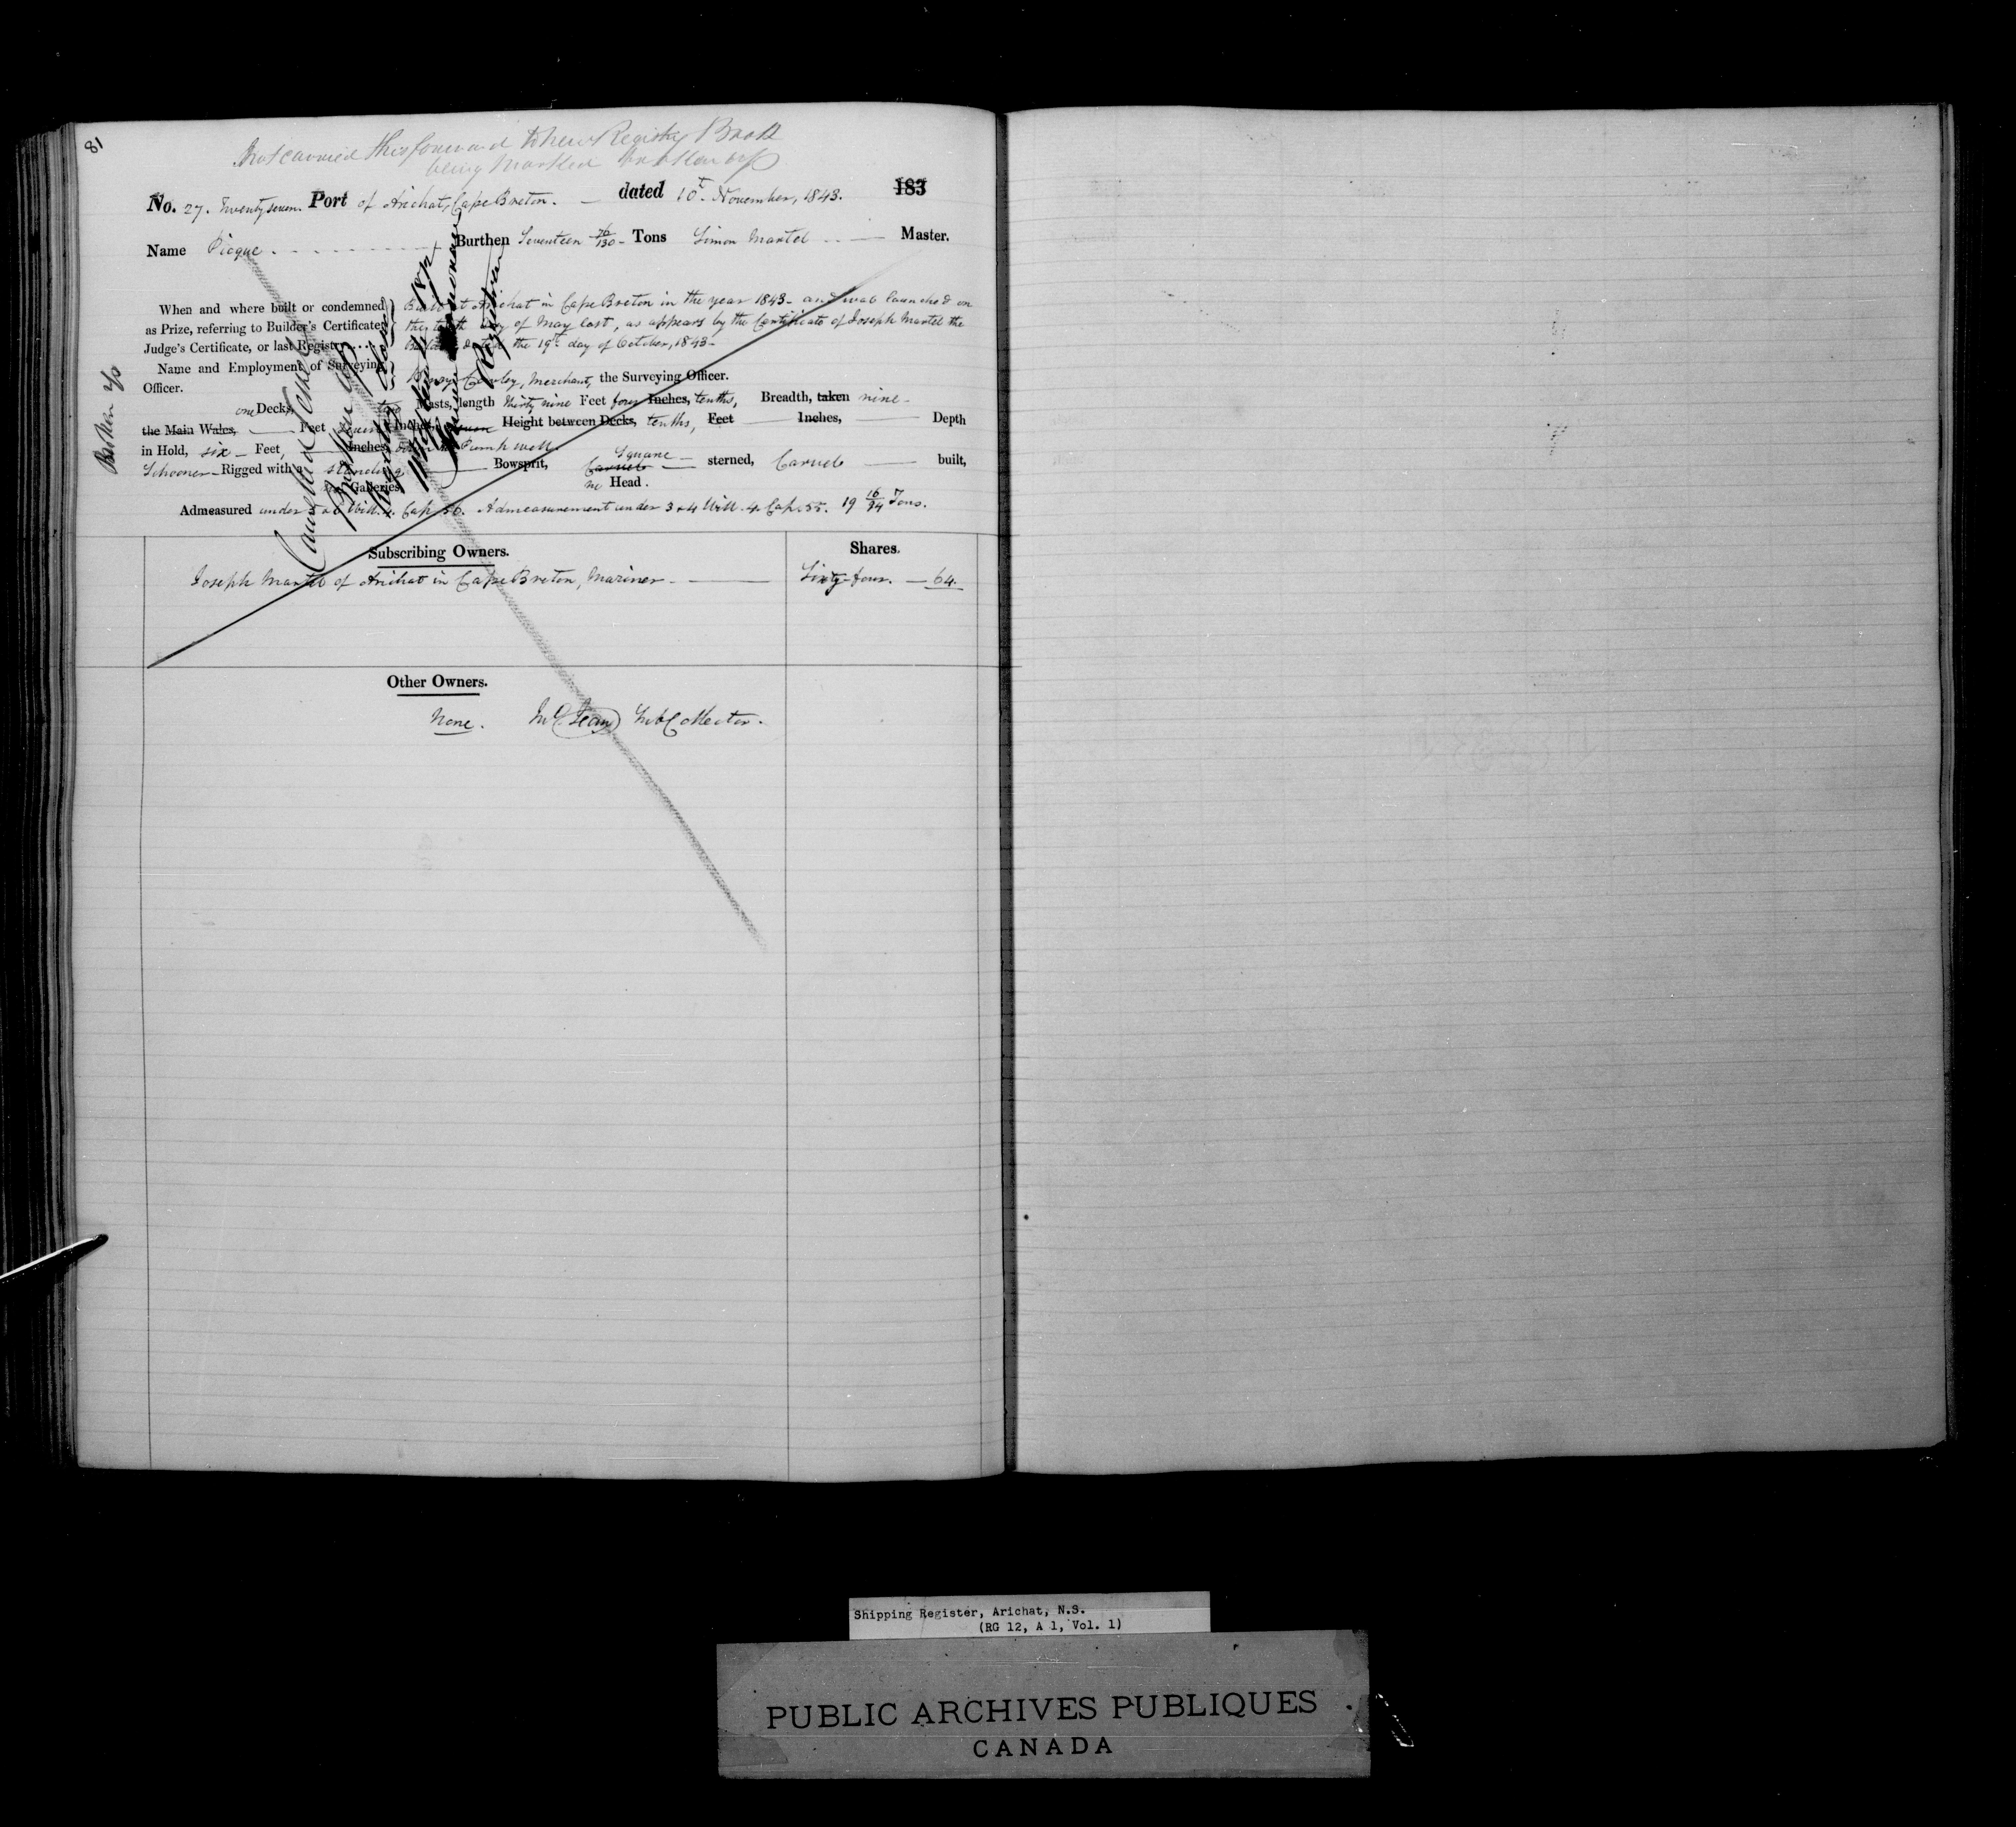 81
Not carried this forward to New Registry Book
being marked broken up
No. 27. Twenty seven. Port of Arichat, Cape Breton. — dated 10th November, 1843. 183
Name Picque. Burthen Seventeen 76/130 Tons Simon Martel Master.
When and where built or condemned as Prize, referring to Builder's Certificate, Judge's Certificate, or last Registry....
Built at Arichat in Cape Breton in the year 1843 - and was launched on
the day of May last, as appears by the Certificate of Joseph Martel the
Builder dated the 19th day of October, 1843-
Name and Employment of Surveying
Officer.
Merchant, the Surveying Officer.
one Decks, two Masts, length thirty nine Feet four Inches, tenths, Breadth, taken nine -
the Main Wales, Feet Inches, Height between Decks, tenths, Feet — Inches, — Depth
in Hold, six — Feet, — Inches, Pump well.
Schooner - Rigged with a standing Bowsprit, Carvel Square — sterned, Carvel — built,
no Galleries, no Head.
Admeasured under 5 & 6 Will. 4. Cap 56. Admeasurement under 3 & 4 Will. 4. Cap. 55. 19 16/94 Tons.
Broken up
Cancelled
Broken up
Registrar
Subscribing Owners. Shares.
Joseph Martel of Arichat in Cape Breton, Mariner — Sixty-four. — 64.
Other Owners.
None. Sub Collector.
Shipping Register, Arichat, N.S.
(RG 12, A 1, Vol. 1)
PUBLIC ARCHIVES PUBLIQUES
CANADA